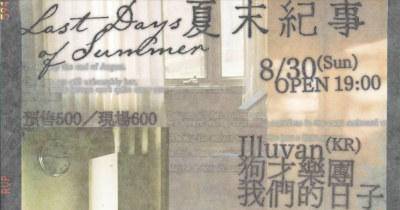 Last Days
of Summer
夏末紀事
8/30(Sun)
OPEN 19:00
預售500／現場600
Illuvan(KR)
狗才樂團
我們的日子